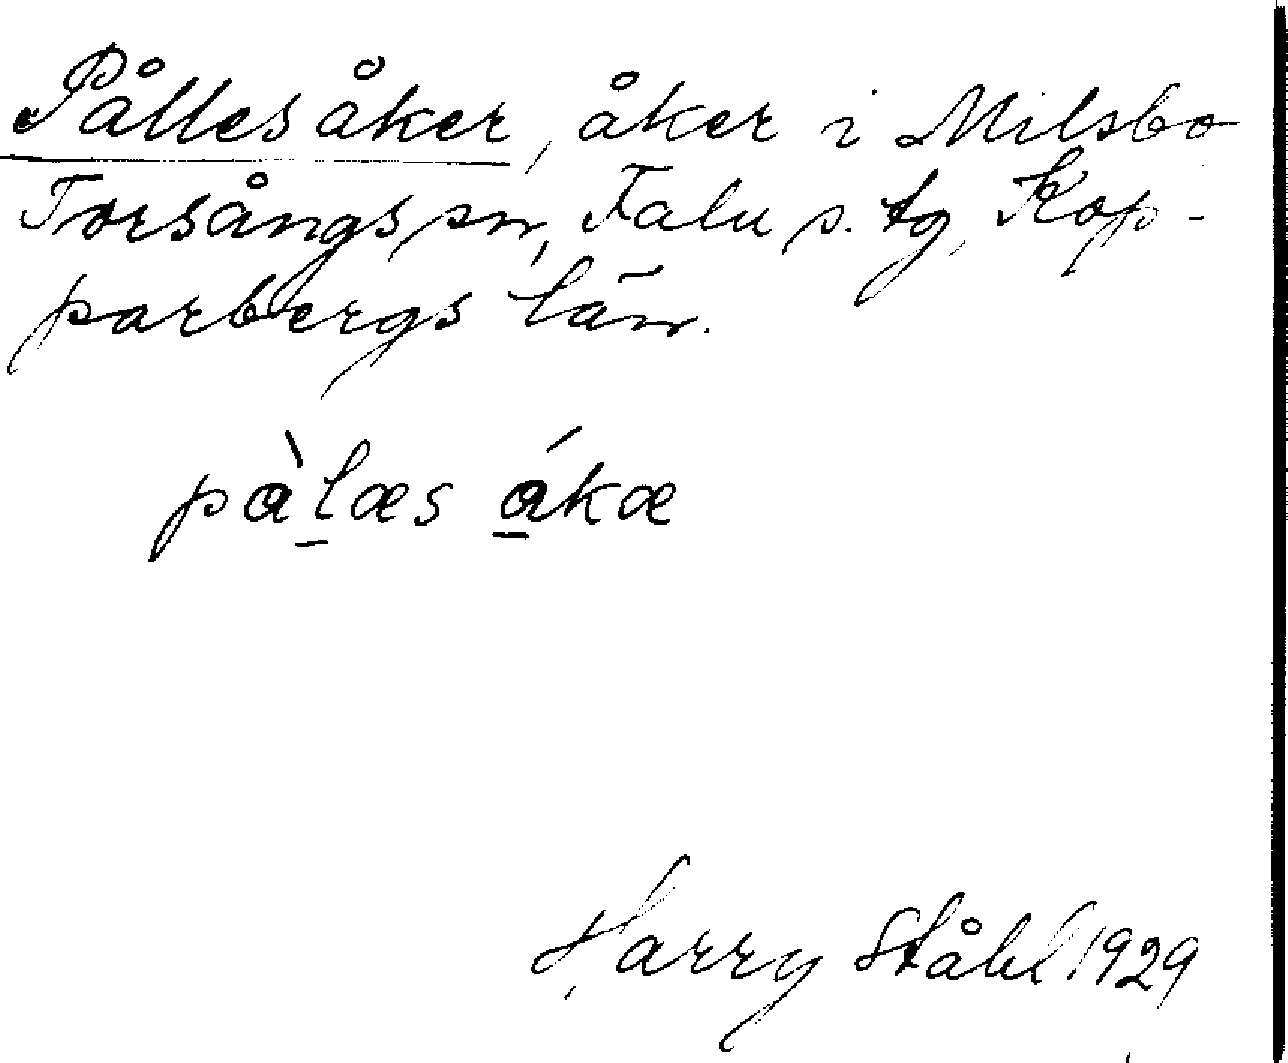 Pållesåker, åker i Milsbo
Torsångs sn, Falu s. tg, Kop-
parbergs län.
pàlæs ákæ
Harry Ståhl 1929